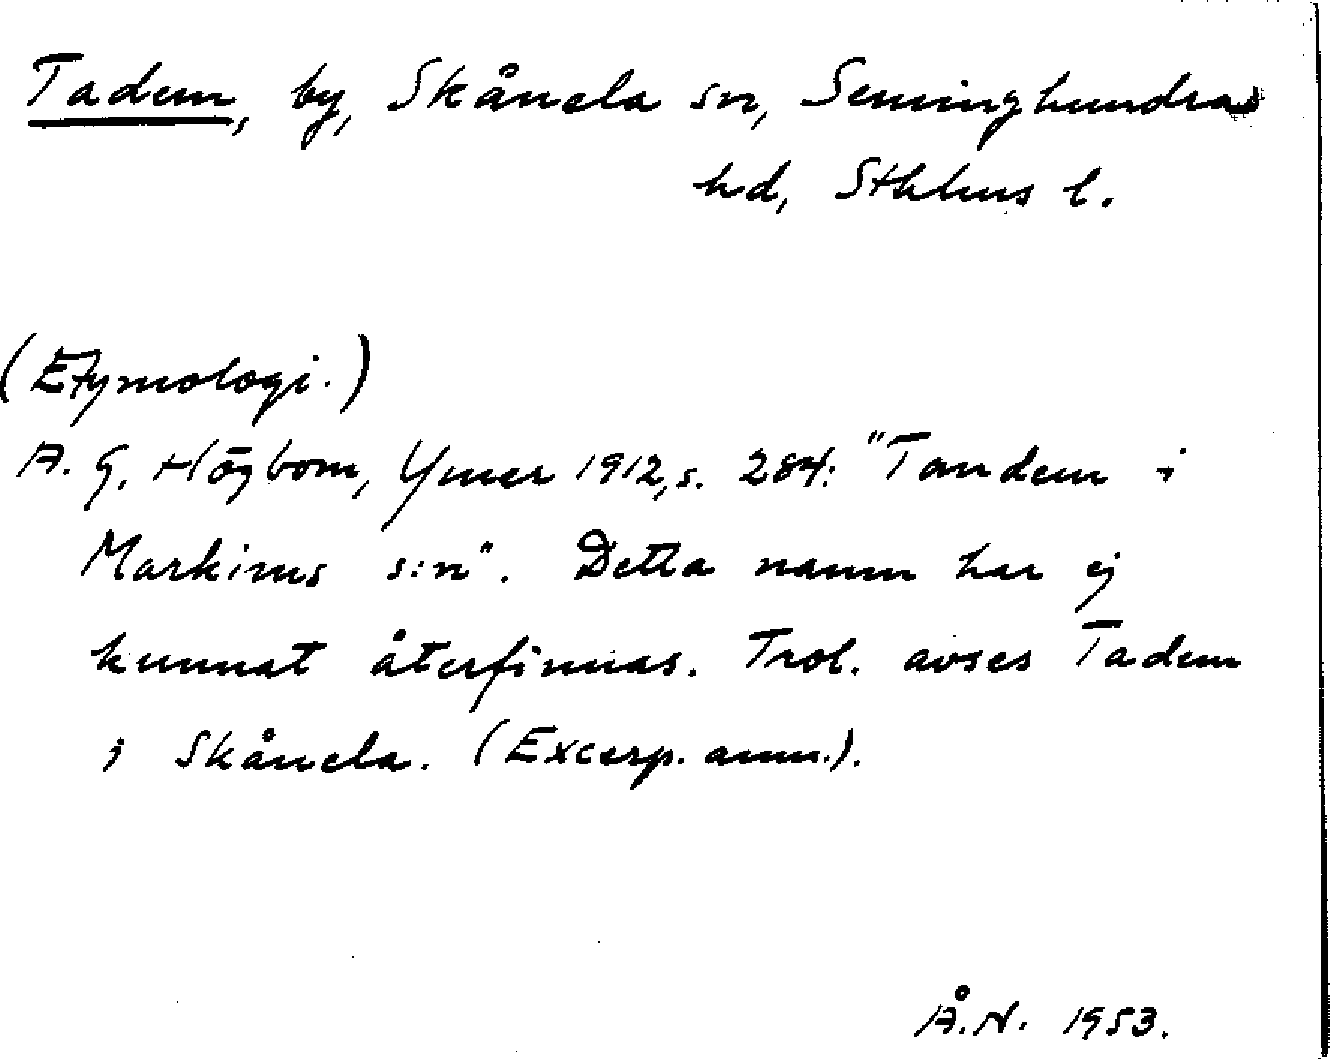 Tadem, by, Skånela sn, Seminghundra
hd, Sthlms l.
(Etymologi.)
A. G. Högbom, Ymer 1912, s. 284: "Tandem i
Markims s:n". Detta namn har ej
kunnat återfinnas. Trol. avses Tadem
i Skånela. (Excerp. anm.).
Å.N. 1953.